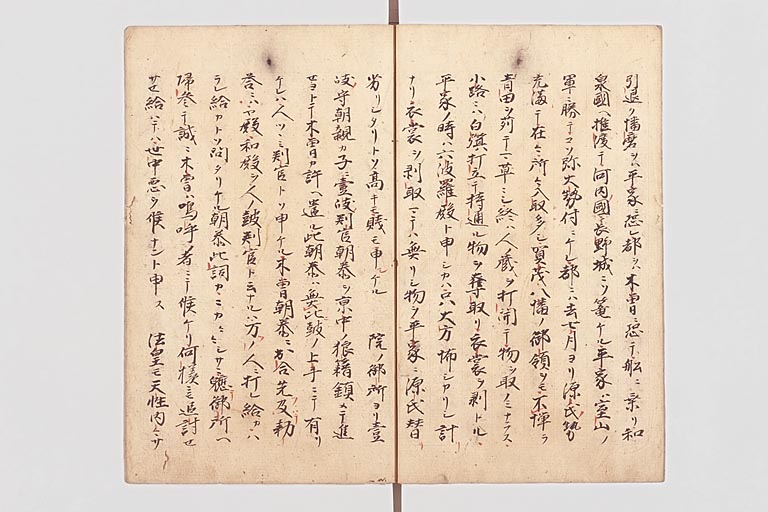 引退ク播磨ヲハ平家ニ恐レ都ヲハ木曽ニ恐テ船ニ乗リ和
泉國ヘ推渡テ河内國長野城ニソ篭ケル平家ハ室山ノ
軍ニ勝テコソ弥大勢付ニケレ都ニハ去七月ヨリ源氏勢
充満テ在々所々ニ入取多シ賀茂八幡ノ御領ヲモ不憚ラ
青田ヲ苅テ草ニシ終ハ人ノ蔵ヲ打開テ物ヲ取ノミナラス
小路ニハ白旗打立テ持通ル物ヲ奪取リ衣裳ヲ剥トル
平家ノ時ハ六波羅殿ト申シカハ只大方怖シカリシ計
ナリ衣裳ヲ剥取マテハ無リシ物ヲ平家ニ源氏替
劣リシタリトソ高モ賤モ申ケル 院ノ御所ヨリ壹
岐守朝親カ子ニ壹岐判官朝泰ヲ京中ノ狼藉鎮メテ進
セヨトテ木曽カ許ヘ遣ル此朝泰ハ無比皷ノ上手ニテ有リ
ケレハ人ツヽミ判官トソ申ケル木曽朝泰ニ出合先及勅
答ニハ不殿和殿ヲ人ノ皷判官ト云ナルハ万ノ人ニ打レ給カハ
ラレ給カトソ問タリケル朝泰此詞カニカ々シサニ軈御所ヘ
帰参テ誠ニ木曽ハ嗚呼ノ者ニテ候ケリ何様ニモ追討セ
サセ給ハテハ世中悪ク候ナント申ス 法皇モ天性内々サ